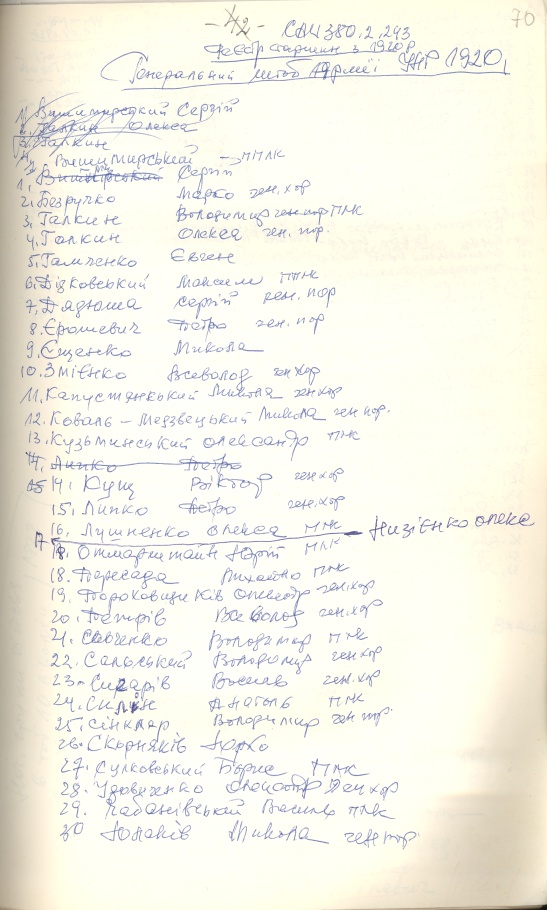 - 42 -
70
САШ 380, 2, 293
Реєстр старшин з 1920 р
Генеральний штаб Армії УНР 1920,
2. Галкин Олекса
3. Галкин
→ ППЛК
1. Сергій
2. Безручко Марко ген. хор
3. Галкин Володимир ген. хор ПЛК
4. Галкин Олекса ген. пор.
5. Гамченко Євген
6. Дідковський Максим ППЛК
7. Дядюша Сергій ген. пор
8. Єрошевич Петро ген. пор
9. Єщенко Микола
10. Змієнко Всеволод ген хор
11. Капустянський Микола ген хор
12. Коваль – Медзвецький Микола ген хор.
13. Кузьминський Олександр ПЛК
14. Липко Петро
14. Кущ Віктор ген. хор
15. Липко Петро ген. хор
16. Лушненко Олекса ПЛК – Низієнко Олекс
17 Отмарштайн Юрій ППЛК
18. Пересада Михайло ПЛК
19. Пороховщиків Олександр ген. хор
20. Петрів Всеволод ген. хор
21. Савченко Володимир ПЛК
22. Сальський Володимир ген хор
23. Сигарів Василь ген. хор
24. Силин Анатоль ПЛК
25. Сінклер Володимир ген. пор.
26. Скорняків Юрко
27. Сулковський Борис ПЛК
28. Удовиченко Олександр Ген хор
29. Чабанівський Василь ПЛК
30 Юнаків Микола ген. пор